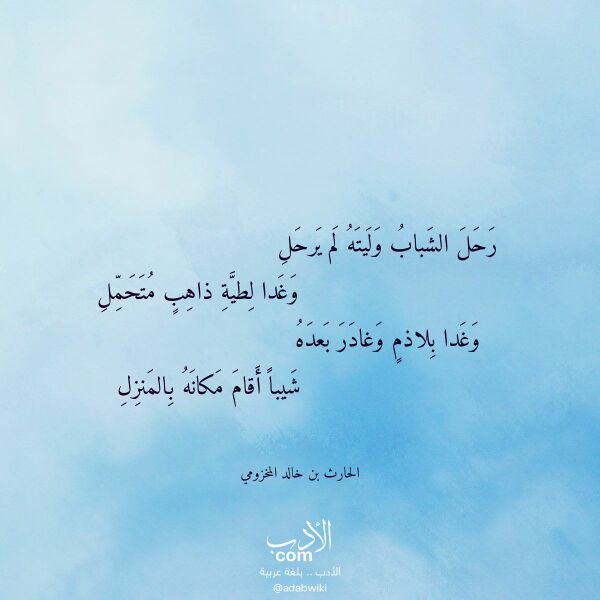 رَحَلَ الشَبابُ وَلَيتَهُ لَم يَرحَلِ
وَغَدا لِطيَّةِ ذاهِبٍ مُتَحَمِّلِ
وَغَدا بِلاذمٍ وَغادَرَ بَعدَهُ
شَيباً أَقامَ مَكانَهُ بِالمَنزِلِ
الحارث بن خالد المخزومي
الأدب
com
الأدب .. بلغة عربية
@adabwiki